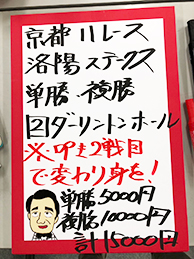 京都11レース
洛陽ステークス
単勝.複勝
2ダーリントンホール
※叩き2戦目
で変わり身を!
単勝5000円
複勝10000円
計15000円